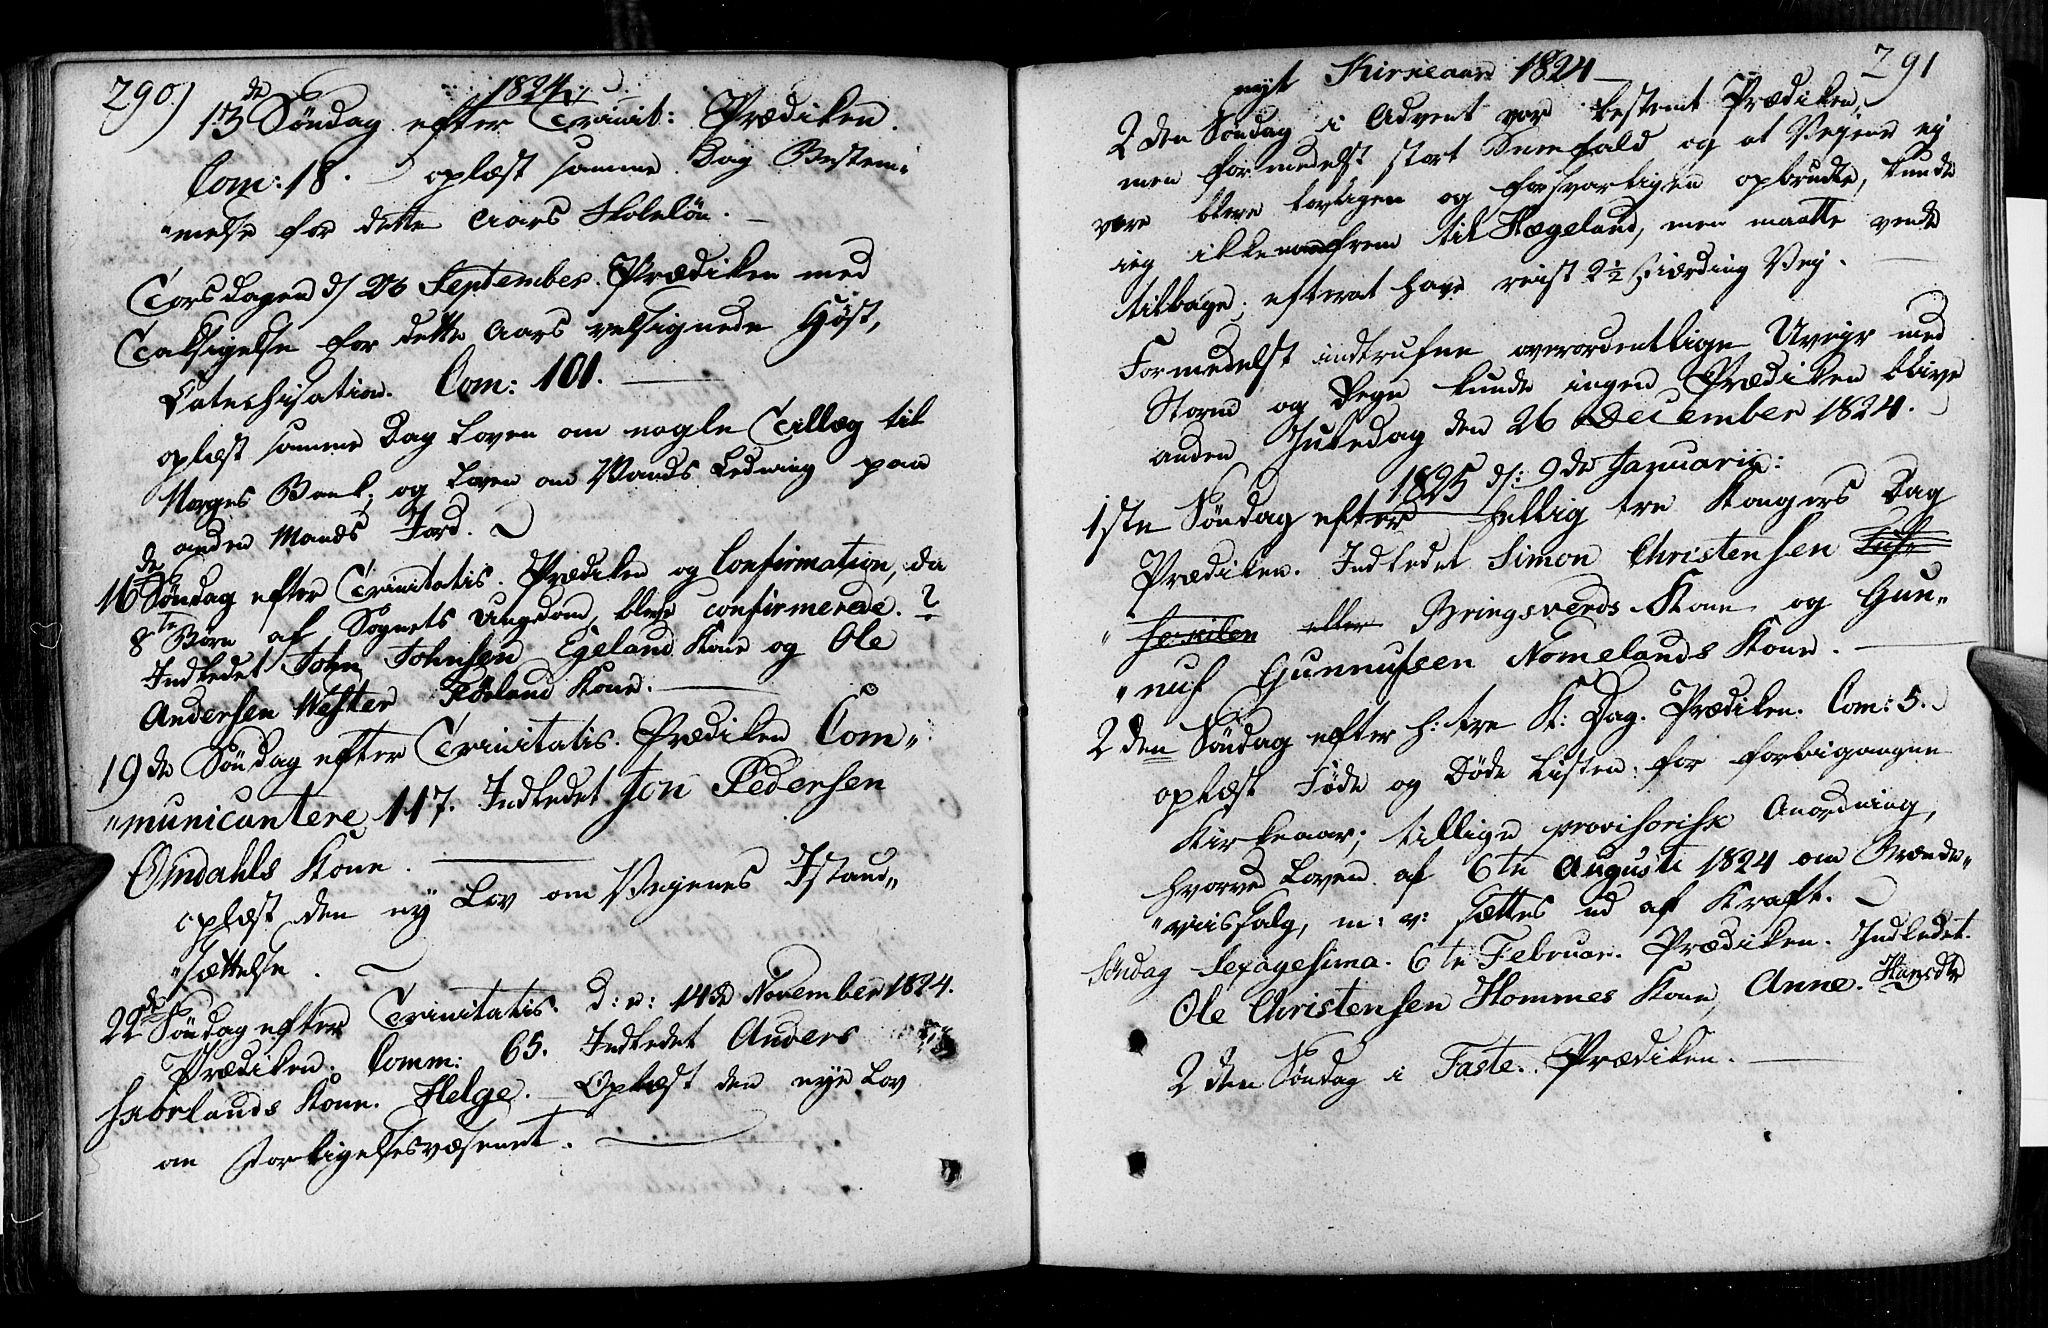 290.)
1824
13de Søndag efter Trinit: Prædiken.
Com: 18. oplæst samme Dag Bestem-
"melse for dette Aars Skoleløn.
Torsdagen d/ 23 September. Prædiken med
Taksigelse for dette Aars velsignede Høst,
Catechisation. Com: 101.
oplæst samme Dag Loven om nogle Tillæg til
Norges Bank; og Loven om Vands Ledning paa
anden Mands Jord.
16de Søndag efter Trinitatis. Prædiken og Confirmation, da
8te Børn af Sognets Ungdom, bleve confirmerede. ?
Indledet John Johnsen Egeland Kone og Ole
Andersen Wester Kone.
19de Søndag efter Trinitatis. Prædiken Com"
"municantere 117. Indledet Jon Pedersen
Omdahls Kone.
oplæst den ny Lov om Vejenes Istand"
"sættelse.
22de Søndag efter Trinitatis. d: e: 14de November 1824.
Prædiken. Comm: 65. Indledet Anders
Kone. Helge. Oplæst den nye Lov
om Forligelsesvæsenet.
291
nyt Kirkeaar 1824
2den Søndag i Advent var bestemt Prædiken,
men formedelst stort Sneefald og at Vejene ej
vare blevne og opbrudte, kunde
jeg ikke frem til Hægeland, men maatte vende
tilbage, efterat have reist 2½ Fiærding Vej.
Formedelst indtrufne overordentlige Uvejr med
Storm og Regn kunde ingen Prædiken blive
anden Juledag den 26 December 1824.
1825 d/: 9de Januarii:
1ste Søndag efter hellig tre Kongers Dag
Prædiken. Indledet Simon Christensen
eller Bringsverds Kone og Gun"
"nuf Gunnufsen Nomelands Kone.
2den Søndag efter h: tre K: Dag. Prædiken. Com: 5.
oplæst Føde og Døde Listen for forbigangne
Kirkeaar; tillige provisorisk Anordning,
hvorved Loven af 6te Augusti 1824 om Brænde"
"viissalg, m: v: sættes ud af Kraft.
Søndag Sexagesima. 6te Februar. Prædiken. Indledet
Ole Christensen Hommes Kone, Anne. Hansdtr
2den Søndag i Faste. Prædiken.